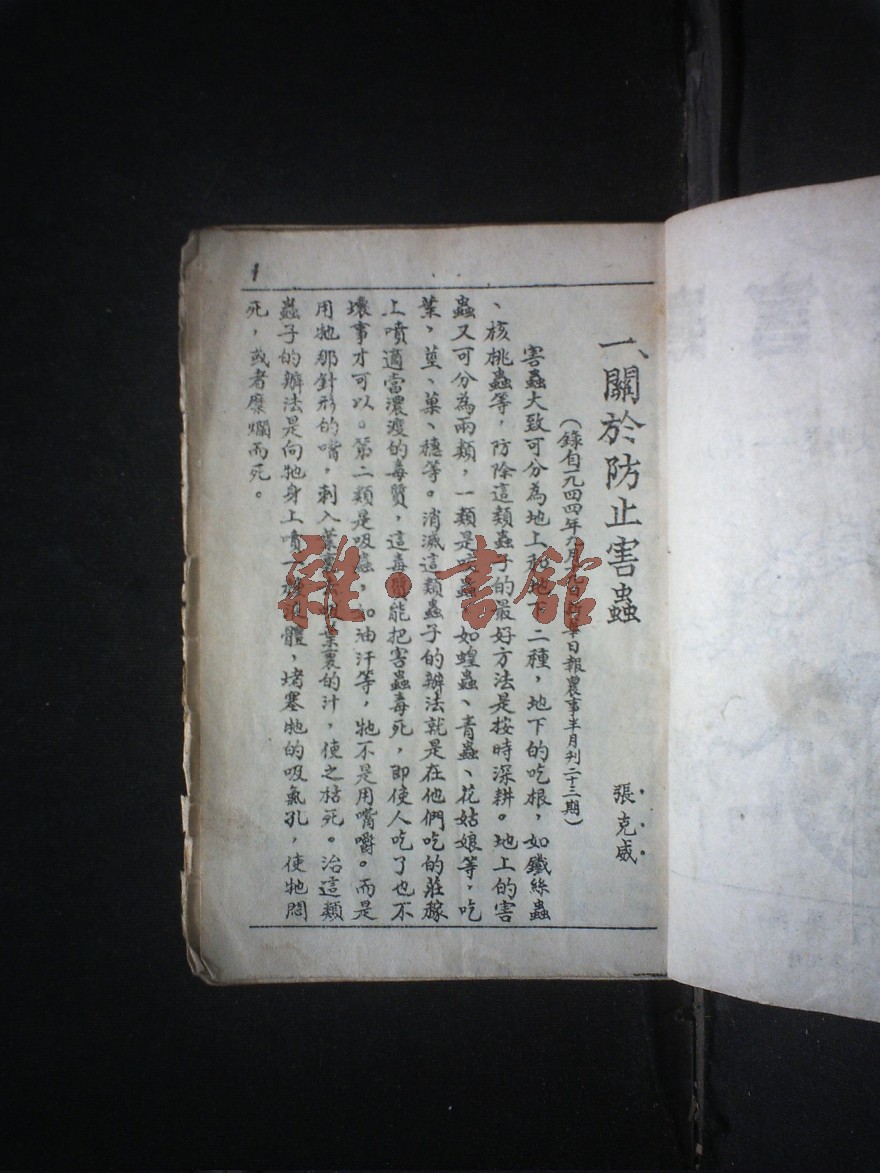 一、關於防止害蟲
張克威
(錄自一九四四年九月 日報農事半月刊二十三期)
害蟲大致可分為地上和地下二種，地下的吃根，如鐵絲蟲
、核桃蟲等，防除這類蟲子的最好方法是按時深耕。地上的害
蟲又可分為兩類，一類是 蟲 如蝗蟲、青蟲、花姑娘等，吃
葉、莖、菓、穗等。消滅這類蟲子的辦法就是在他們吃的莊稼
上噴適當濃度的毒質，這毒質能把害蟲毒死，即使人吃了也不
壞事才可以。第二類是吸蟲，如油汗等，牠不是用嘴嚼。而是
用牠那針形的嘴，刺入葉裏 葉裏的汁，使之枯死。治這類
蟲子的辦法是向牠身上噴一種 體，堵塞牠的吸氣孔，使牠悶
死，或者糜爛而死。
1
雜·書館